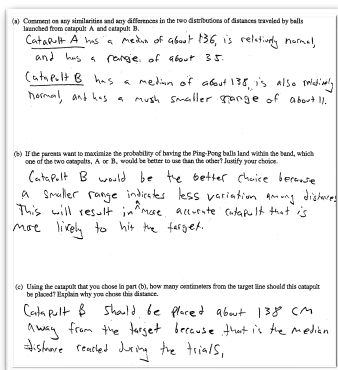 (a) Comment on any similarities and any differences in the two distributions of distances traveled by balls
launched from catapult A and catapult B.
Catapult A has a median of about 136, is relatively normal,
and has a range of about 35.
Catapult B has a median of about 138, is also relatively
normal, and has a mush smaller range of about 11.
(b) If the parents want to maximize the probability of having the Ping-Pong balls land within the band, which
one of the two catapults, A or B, would be better to use than the other? Justify your choice.
Catapult B would be the better choice because
a smaller range indicates less variation among distances
This will result in a more accurate catapult that is
more likely to hit the target.
(c) Using the catapult that you chose in part (b), how many centimeters from the target line should this catapult
be placed? Explain why you chose this distance.
Catapult B should be placed about 138 CM
away from the target because that is the median
distance reached during the trials,